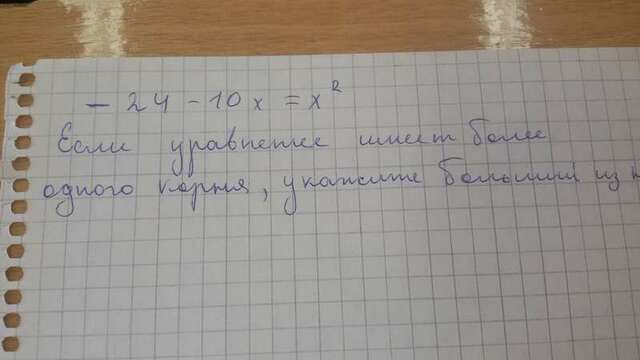 - 24 - 10x = x²
Если уравнение имеет более
одного корня, укажите больший из н